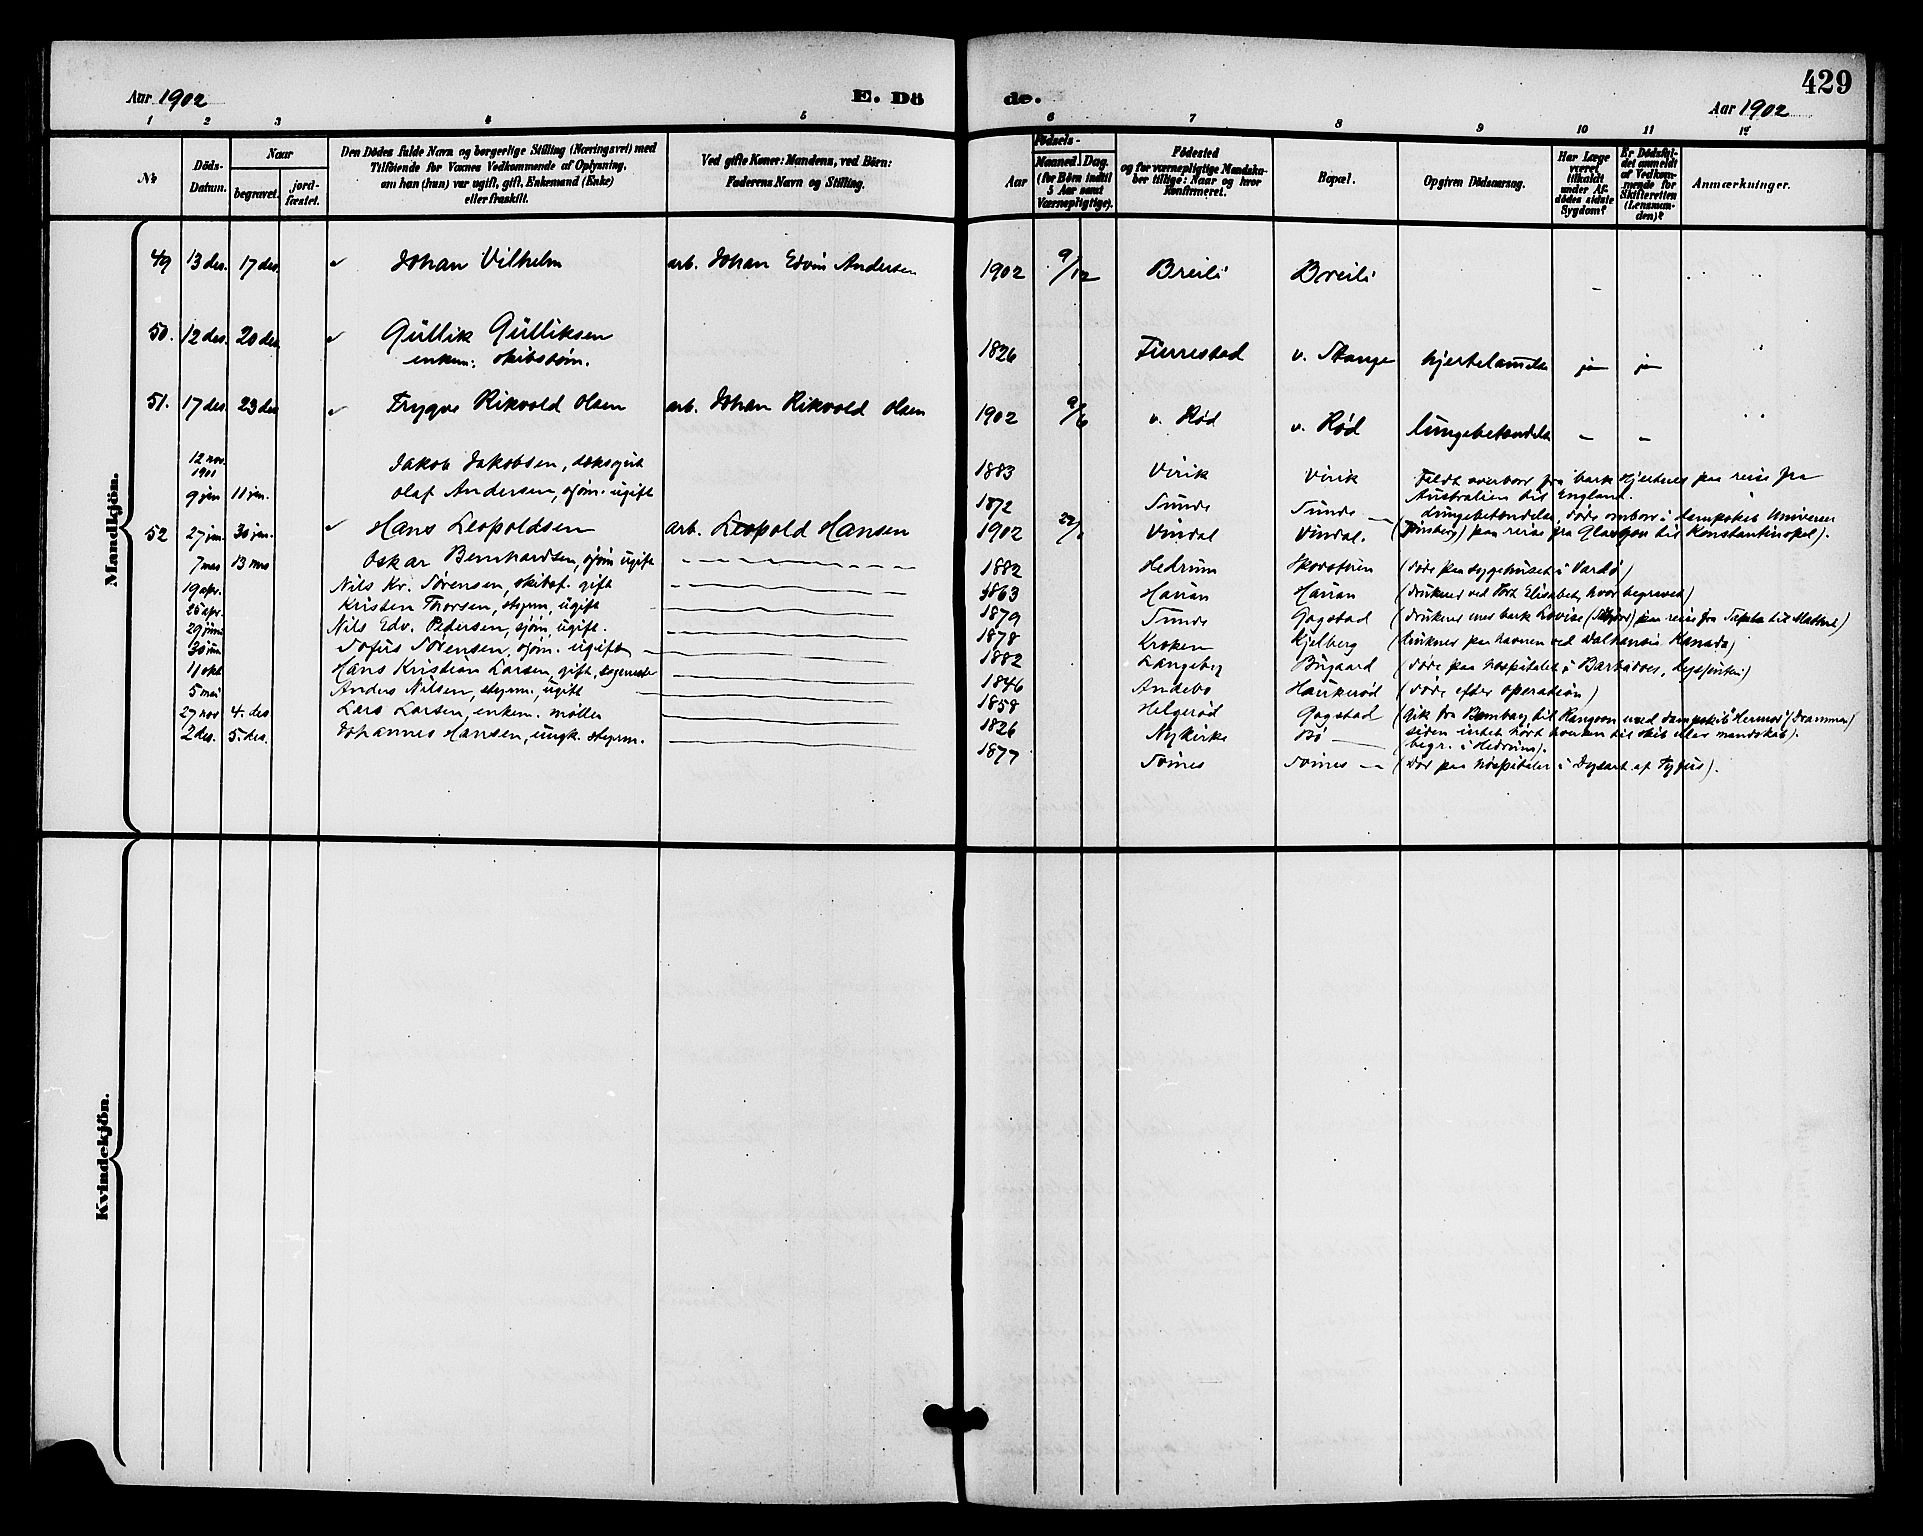 429
Aar 1902
E. Dö
de.
Aar 1902
1 2 3 4 5 6 7 8 9 10 11 12
No
Döds-Datum.
Naar
begravet.
jord-fæstet.
Den Dödes fulde Navn og borgerlige Stilling (Næringsvei) med
Tilföiende for Voxnes Vedkommende af Oplysning,
om han (hun) var ugift, gift, Enkemand (Enke)
eller fraskilt.
Ved gifte Koner: Mandens, ved Börn:
Faderens Navn og Stilling.
Födsels-
Aar
Maaned. Dag.
(for Börn indtil
5 Aar samt
Værnepligtige).
Födested
og for værnepligtige Mandska-
ber tillige: Naar og hvor
konfirmeret.
Bopæl.
Opgiven Dödsaarsag.
Har Læge
været
tilkaldt
under Af-
dödes sidste
Sygdom?
Er Dödsfal-
det anmeldt
af Vedkom-
mende for
Skifteretten
(Lensman-
den)?
Anmærkninger.
Mandkjön.
49 13 des. 17 des. Johan Vilhelm arb. Johan Edvin Andersen 1902 9/12 Breili Breili -
50. 12 des. 20 des. Gullik Gulliksen 1826 Furrestad v. Stange hjertelammelse ja ja
enkem. skibstøm.
51. 17 des 23 des Trygve Rikvold Olsen arb. Johan Rikvold Olsen 1902 9/6 v. Rød v. Rød lungebetændelse - -
12 nov. 1901 Jakob Jakobsen, dæksgut 1883 Virik Virik Faldt overbord fra bark Hjertnes paa reise fra
Australien til England.
9 jan 11 jan. Olaf Andersen, sjøm. ugift 1872 Sunde Sunde - Lungebetændelse, døde ombord i dampskib Universe
(Tønsberg) paa reise fra Glasgow til Konstantinopel).
52 27 jan. 30 jan. Hans Leopoldsen arb. Leopold Hansen 1902 22/1 Vindal Vindal.
7 mars 13 mrs Oskar Bernhardsen, sjøm ugift 1882 Hedrum (døde paa sygehuset i Vardø)
19 apr. Nils Kr. Sørensen, skibsf. gift 1863 Hauan Hauan (druknet ved Port Elisabet, hvor begravet)
25 apr. Kristen Thorsen, styrm, ugift 1879 Sunde Gogstad (druknet med bark Lovise paa reise fra til)
29 juni Nils Edv. Pedersen, sjøm, ugift. 1878 Kroken Kjelberg (druknet paa havnen ved Dalhousie Kanada)
30 jun Sofus Sørensen, sjøm. ugift 1882 Langeby Bugaard (døde paa hospitalet i Barbadoes, dyssenteri)
11 okt Hans Kristian Larsen, gift, 1846 Andebo Haukerød (døde efter operation)
5 mai Anders Nilsen, styrm., ugift 1858 Helgerød Gogstad (Gik fra Bombay til Rangoon med dampskib "Hermes" (Drammen)
siden intet hørt hverken til skib eller mandskab).
27 nov 4. des Lars Larsen, enkem. møller 1826 Nykirke Bø - (begr. i Hedrum).
2 des. 5. des. Johannes Hansen, ungk. styrm. 1877 Tomes Tomes - (Dør paa hospitalet i Dysart af Tyfus).
Kvindekjön.